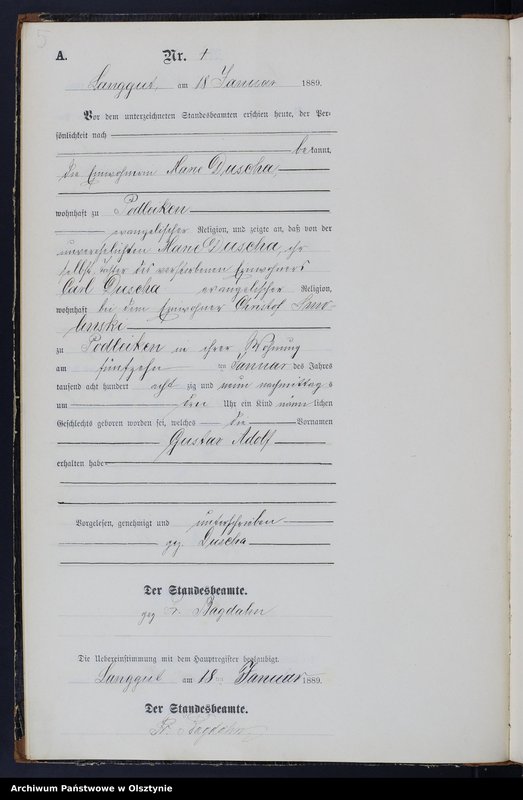 5
A. Nr. 4
Langgut, am 18 Januar 1889.
Vor dem unterzeichneten Standesbeamten erschien heute, der Per-
sönlichkeit nach
be kannt,
die Einwohnerin Marie Duscha,
wohnhaft zu Podleiken
evangelischer Religion, und zeigte an, daß von der
unverehelichten Marie Duscha, ihr
selbst, Tochter des verstorbenen Einwohners
Carl Duscha evangelischer Religion,
wohnhaft bei dem Einwohner Christof
zu Podleiken in ihrer Wohnung
am fünfzehn ten Januar des Jahres
tausend acht hundert acht zig und neun nachmittags
um Uhr ein Kind männ lichen
Geschlechts geboren worden sei, welches die Vornamen
Gustav Adolf
erhalten habe
Vorgelesen, genehmigt und unterschrieben
gez. Duscha
Der Standesbeamte.
gez Bagdahn
Die Uebereinstimmung mit dem Hauptregister beglaubigt.
Langgut am 18 ten Januar 1889.
Der Standesbeamte.
Bagdahn
Archiwum Państwowe w Olsztynie